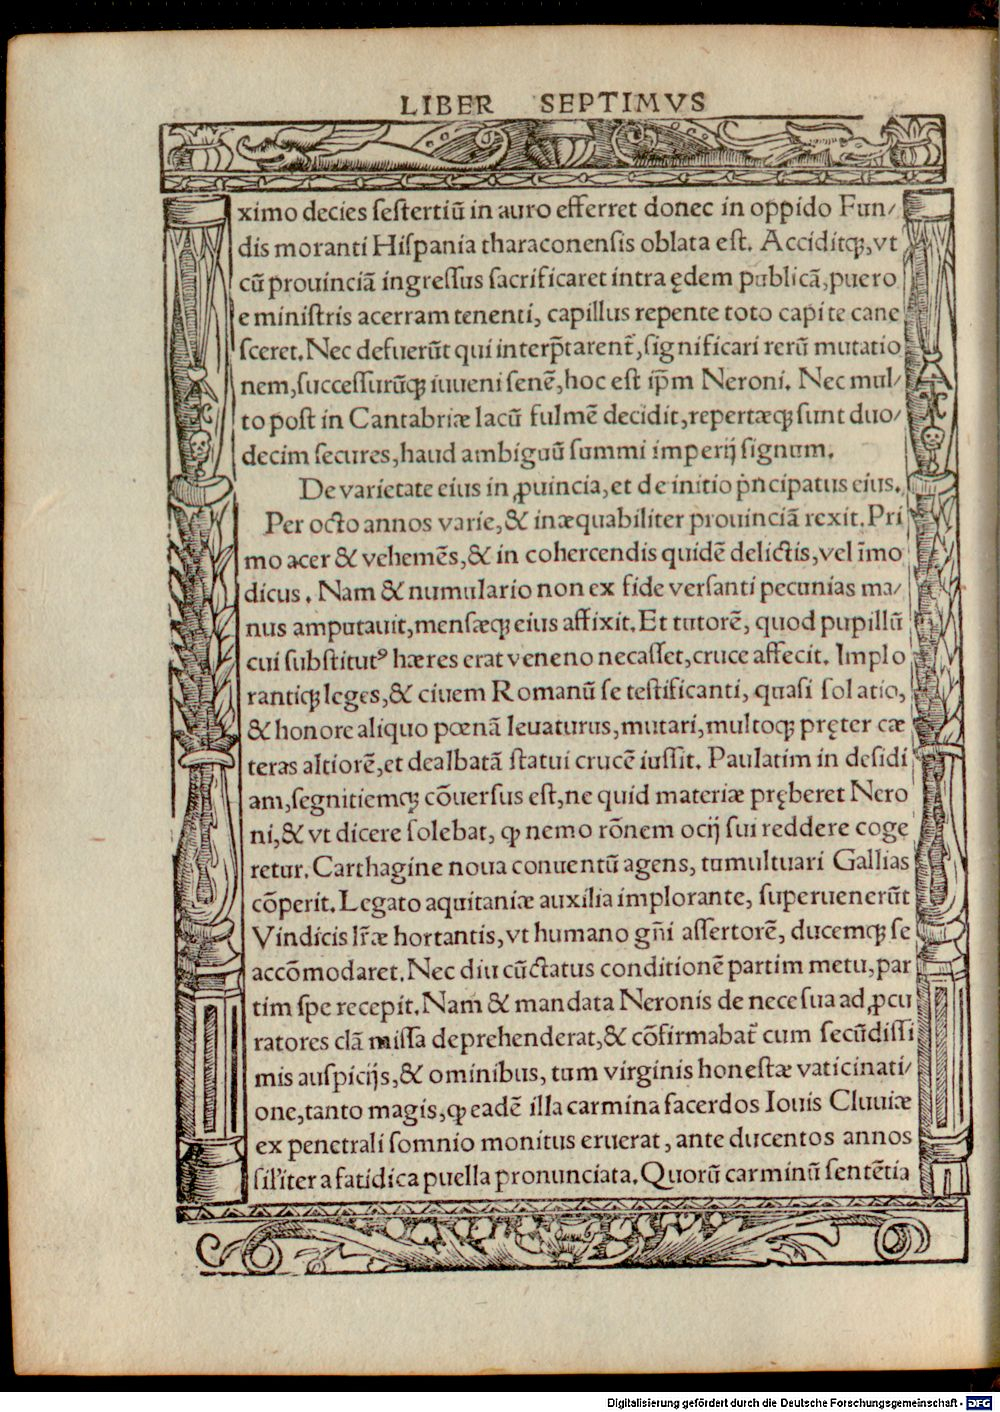 LIBER SEPTIMVS
ximo decies ſeſtertiũ in auro efferret donec in oppido Fun/
dis moranti Hiſpania tharaconenſis oblata eſt. Acciditqꝫ, vt
cũ prouinciã ingreſſus ſacrificaret intra ędem publicã, puero
e miniſtris acerram tenenti, capillus repente toto capite cane
ſceret. Nec defuerũt qui interp̃tarent᷑, ſignificari rerũ mutatio
nem, ſucceſſurũqꝫ iuueni ſenẽ, hoc eſt ip̃m Neroni. Nec mul/
to poſt in Cantabriæ lacũ fulmẽ decidit, repertæqꝫ ſunt duo/
decim ſecures, haud ambiguũ ſummi imperij ſignum.
De varietate eius in ꝓuincia, et de initio pṅcipatus eius.
Per octo annos varie, & inæquabiliter prouinciã rexit. Pri
mo acer & vehemẽs, & in cohercendis quidẽ delictis, vel ĩmo
dicus. Nam & numulario non ex fide verſanti pecunias ma/
nus amputauit, menſæqꝫ eius affixit. Et tutorẽ, quod pupillũ
cui ſubſtitutꝰ hæres erat veneno necaſſet, cruce affecit. Implo
rantiqꝫ leges, & ciuem Romanũ ſe teſtificanti, quaſi ſolatio,
& honore aliquo pœnã leuaturus, mutari, multoqꝫ pręter cæ
teras altiorẽ, et dealbatã ſtatui crucẽ iuſſit. Paulatim in deſidi
am, ſegnitiemqꝫ cõuerſus eſt, ne quid materiæ pręberet Nero
ni, & vt dicere ſolebat, ꝙ nemo rõnem ocij ſui reddere coge
retur. Carthagine noua conuentũ agens, tumultuari Gallias
cõperit. Legato aquitaniæ auxilia implorante, ſuperuenerũt
Vindicis lr̃æ hortantis, vt humano gñi aſſertorẽ, ducemqꝫ ſe
accõmodaret. Nec diu cũctatus conditionẽ partim metu, par
tim ſpe recepit. Nam & mandata Neronis de nece ſua ad ꝓcu
ratores clã miſſa deprehenderat, & cõfirmabat᷑ cum ſecũdiſſi
mis auſpicijs, & ominibus, tum virginis honeſtæ vaticinati/
one, tanto magis, ꝙ eadẽ illa carmina ſacerdos Iouis Cluuiæ
ex penetrali ſomnio monitus eruerat, ante ducentos annos
ſil'iter a fatidica puella pronunciata. Quorũ carminũ ſentẽtia
Digitalisierung gefördert durch die Deutsche Forschungsgemeinschaft - DFG